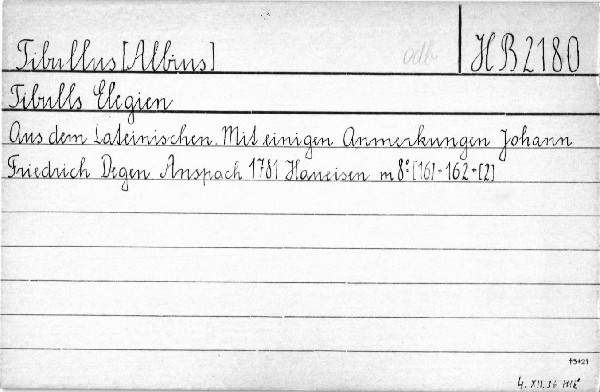 Tibullus [Albius] odb HB2180
Tibulls Elegien
Aus dem Lateinischen. Mit einigen Anmerkungen Johann
Friedrich Degen Anspach 1781 Haueisen m 8° [16]+162+[2]
4. XII. 56